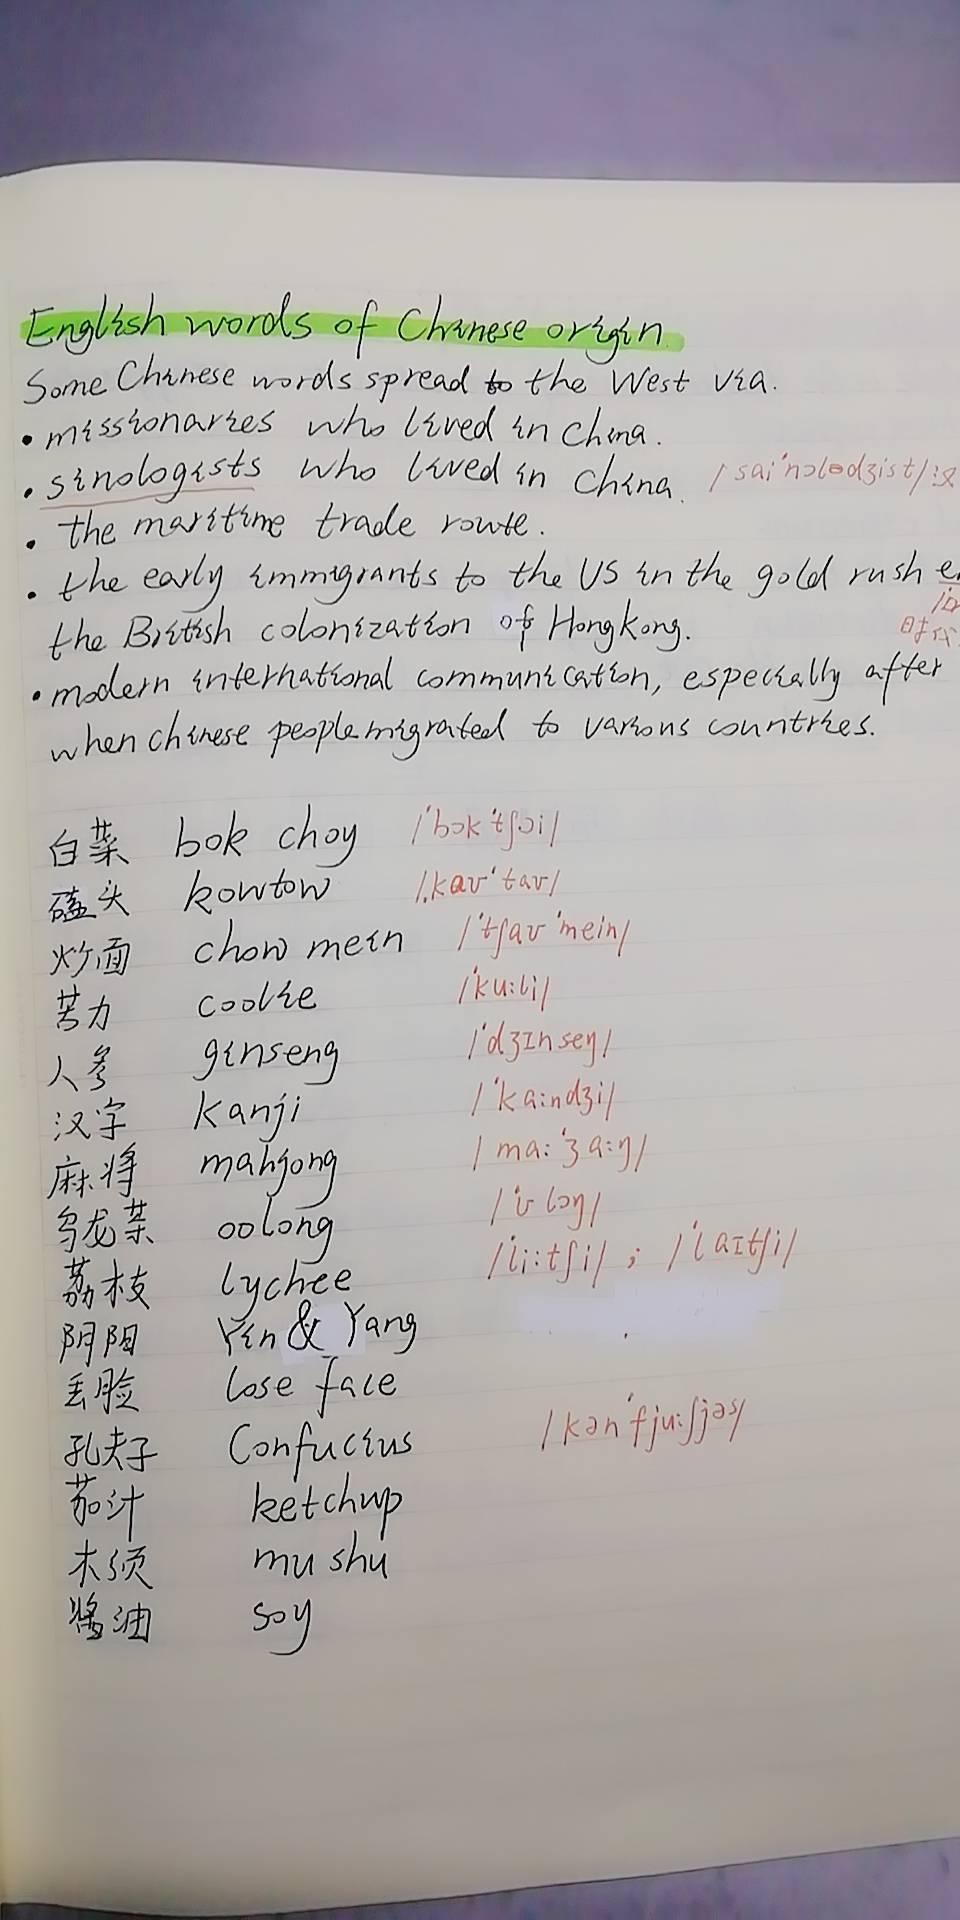 English words of Chinese origin.
Some Chinese words spread to the West via.
• missionaries who lived in China.
• sinologists who lived in China. /sai'nɔlədʒist/ 汉
• the maritime trade route.
• the early immigrants to the US in the gold rush
the British colonization of Hongkong.
时代
• modern international communication, especially after
when chinese people migrated to various countries.
白菜 bok choy /'bɔk'tʃɔi/
磕头 kowtow /ˌkaʊ'taʊ/
炒面 chow mein /'tʃaʊ'mein/
苦力 coolie /'ku:li/
人参 ginseng /'dʒɪnseŋ/
汉字 kanji /'ka:ndʒi/
麻将 mahjong /ma:'ʒa:ŋ/
乌龙茶 oolong /'ʊlɔŋ/
荔枝 lychee /'li:tʃi/ ; /'laɪtʃi/
阴阳 Yin & Yang
丢脸 lose face
孔夫子 Confucius /kən'fju:ʃjəs/
茄汁 ketchup
木须 mu shu
酱油 soy